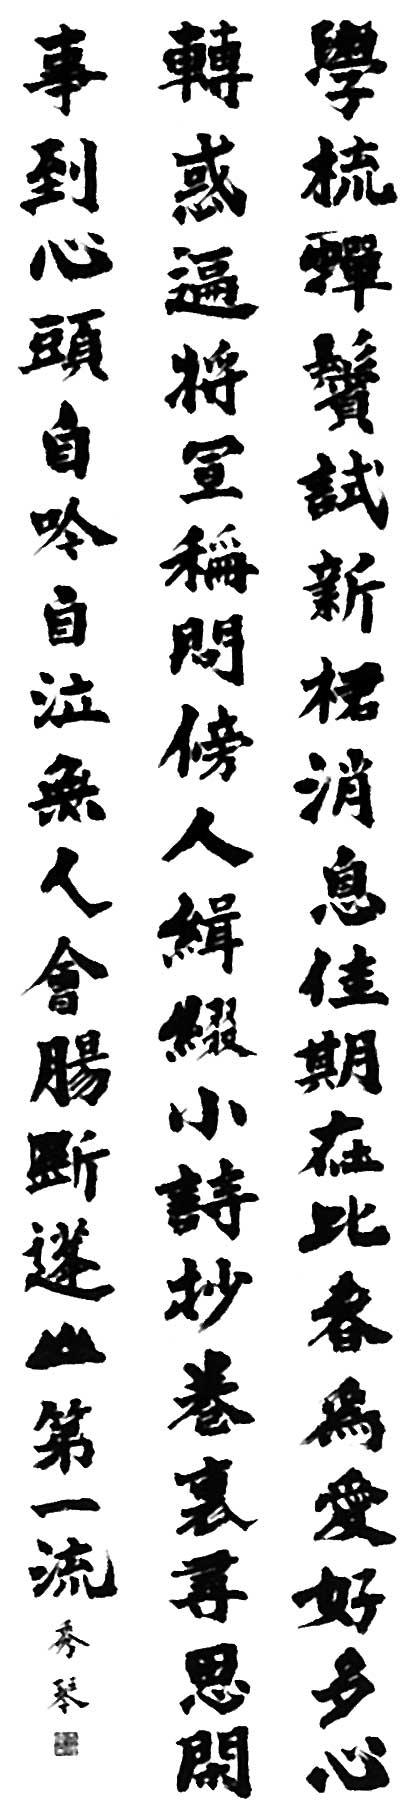 學梳蟬鬢試新裙消息佳期在此春為愛好多心
轉惑遍將宜稱問傍人緝綴小詩抄卷裏尋思閒
事到心頭自吟自泣無人會腸斷蓬山第一流
秀琴